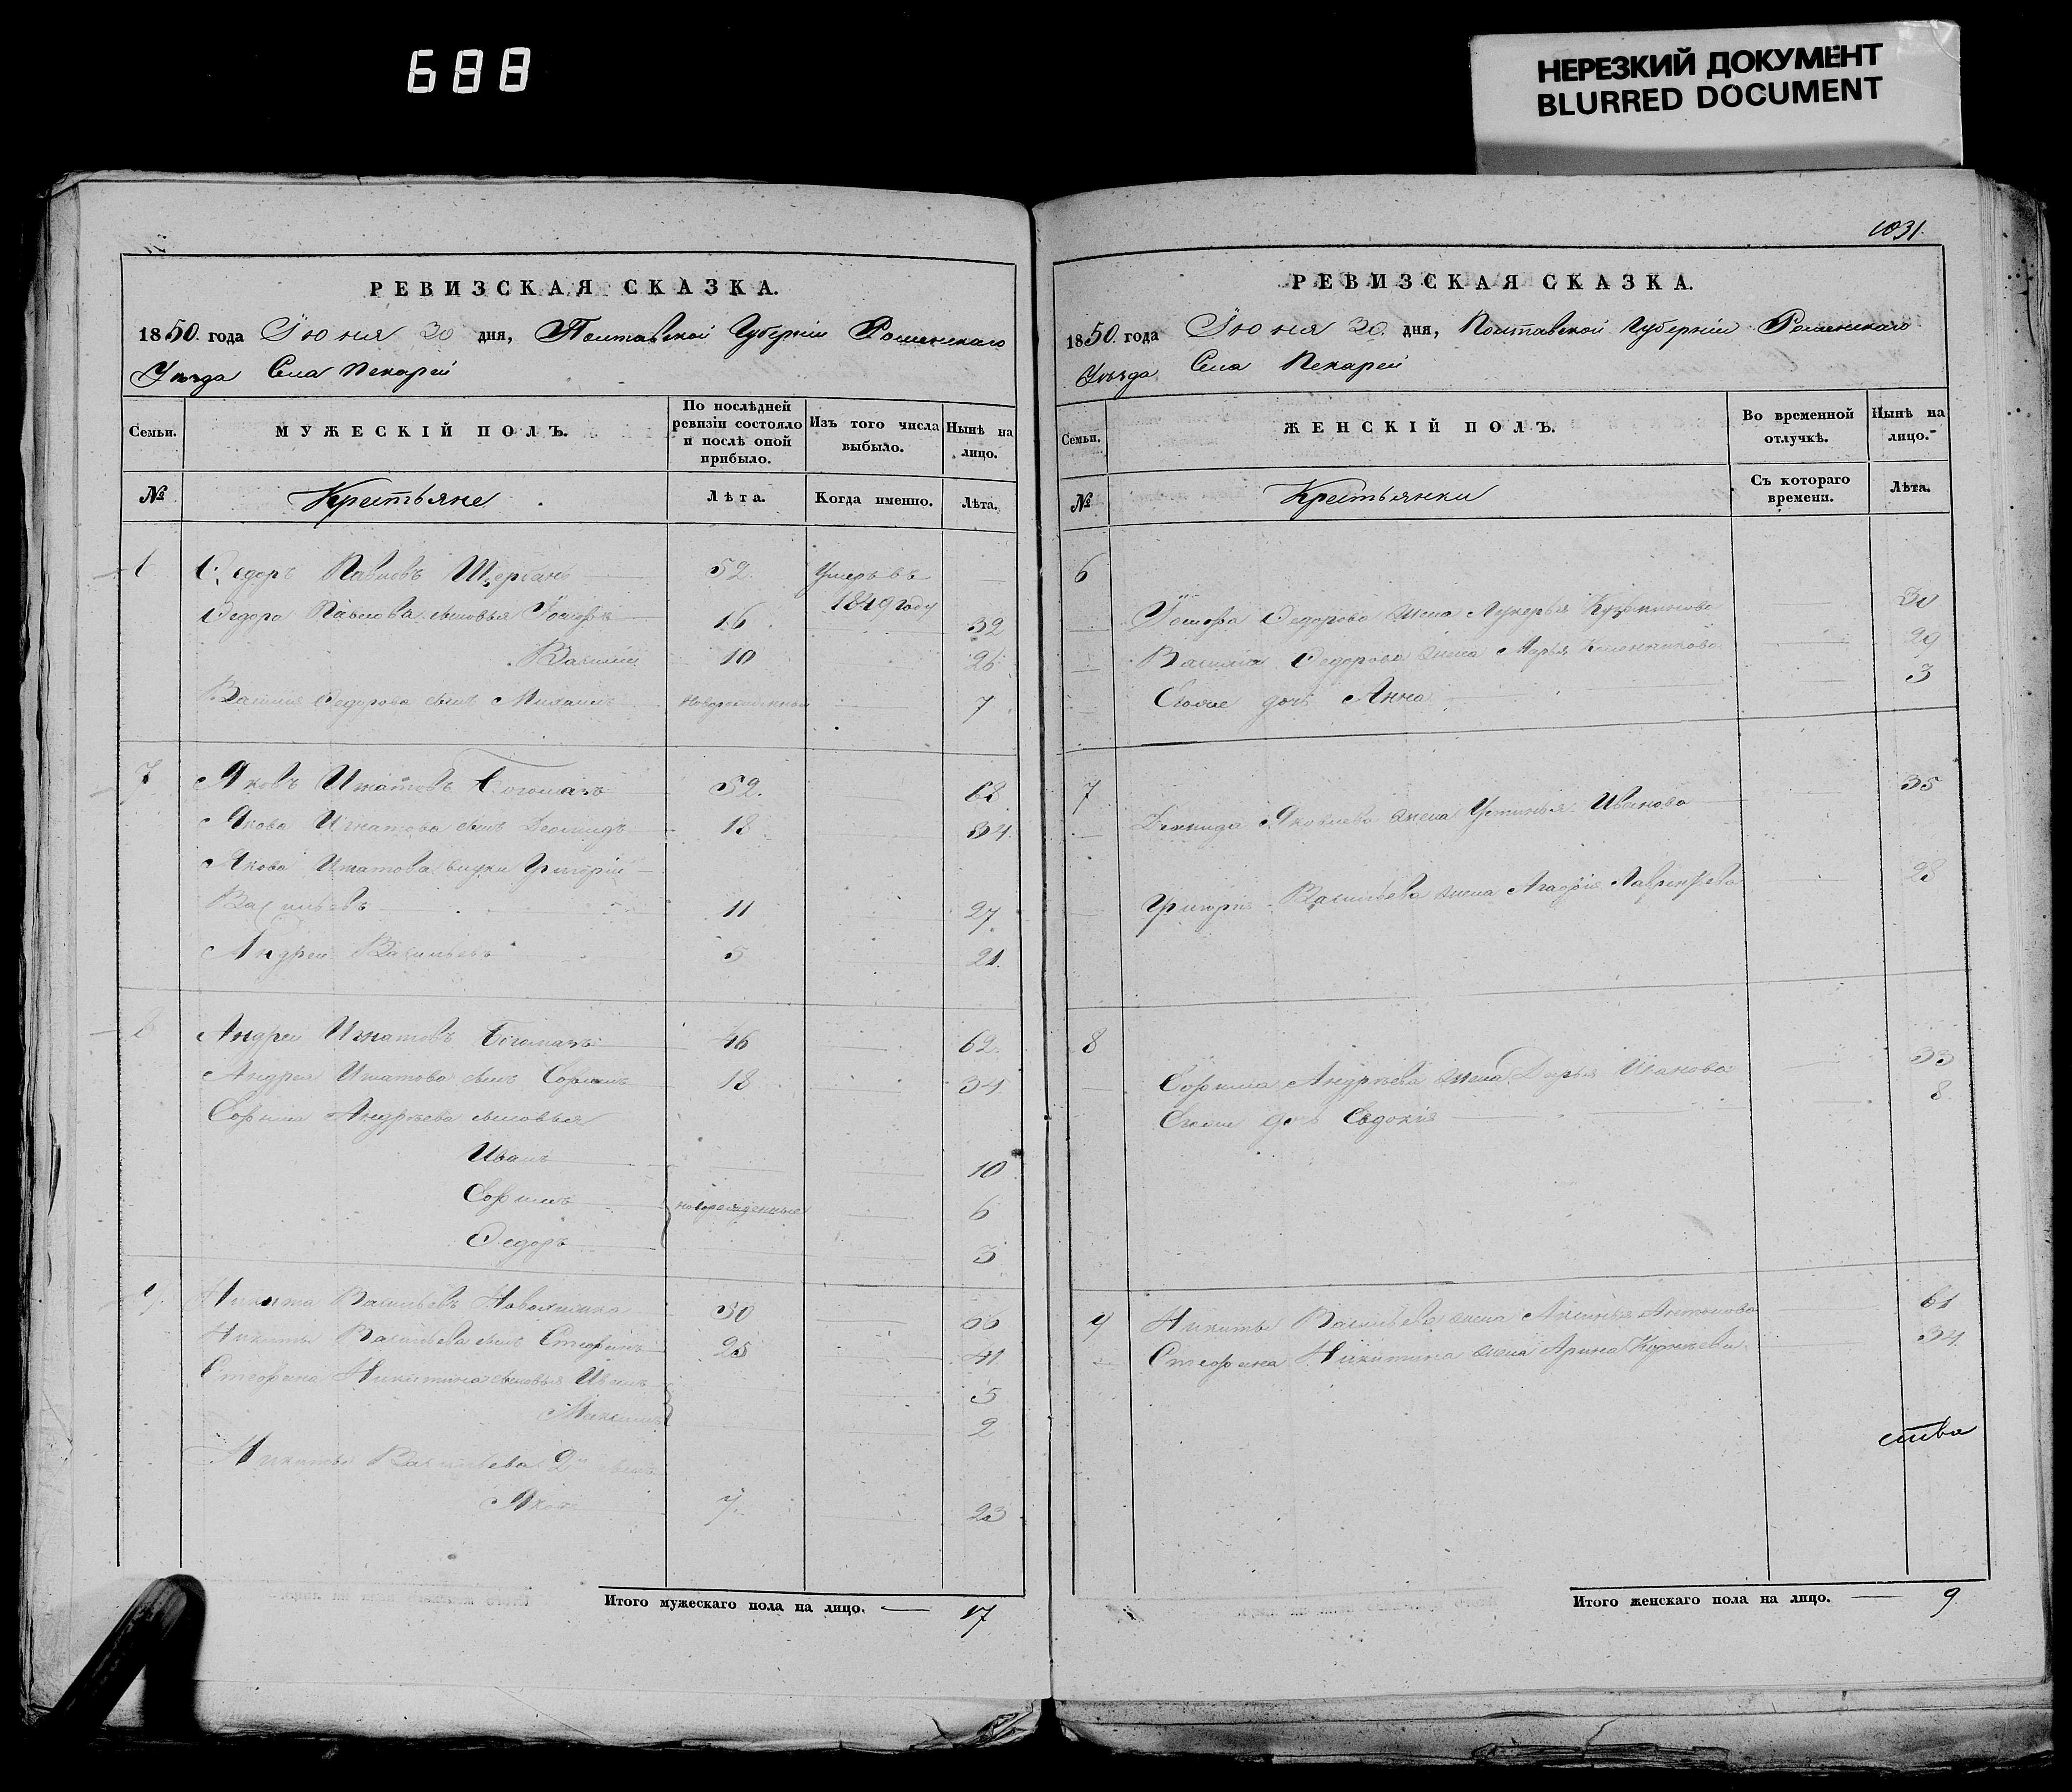 688
НЕРЕЗКИЙ ДОКУМЕНТ
BLURRED DOCUMENT
РЕВИЗСКАЯ СКАЗКА.
1850 года Іюня 30 дня, Полтавской Губерніи Роменскаго
Уѣзда Села Пекарей
Семьи.
МУЖЕСКІЙ ПОЛЪ.
По послѣдней ревизіи состояло и послѣ оной прибыло.
Изъ того числа выбыло.
Нынѣ на лицо.
№
Крестьяне
Лѣта.
Когда именно.
Лѣта.
6 Ѳедоръ Павловъ Щербань 52. Умеръ въ
1849 году
Ѳедора Павлова сыновья 16 32
Василій 10 26
Василія Ѳедорова сынъ Михаилъ новорожденный 7
7 Яковъ Игнатовъ 52. 68
Якова Игнатова сынъ Деомидъ 18 34.
Якова Игнатова внуки Григорій
Васильевъ 11 27.
Андрей Васильевъ 5 21.
8 Андрей Игнатовъ 46 62.
Андрея Игнатова сынъ 18 34.
Андрѣева сыновья
Иванъ 10
новорожденные 6
Ѳедоръ 3
9. Никита Васильевъ
Никиты Васильева сынъ Стефанъ 25 41
Стефана Никитина сыновья Иванъ 5
Максимъ 2
Никиты Васильева 2й сынъ
Яковъ 7. 23
Итого мужескаго пола на лицо. — 17
1031.
РЕВИЗСКАЯ СКАЗКА.
1850. года Іюня 30. дня, Полтавской Губерніи Роменскаго
Уѣзда Села Пекарей
Семьи.
ЖЕНСКІЙ ПОЛЪ.
Во временной отлучкѣ.
Нынѣ на лицо.
№
Крестьянки
Съ котораго времени.
Лѣта.
6
Ѳедорова жена Лукерья 30
Василія Ѳедорова жена Марья 29
дочь Анна 3
7
Деомида Яковлева жена Устинья Иванова 35
Григорія Васильева жена Агафія Лаврентьева 28
8
Андрѣева жена Дарья Иванова 33
дочь Евдокія 8
9 Никиты Васильева жена Антонова 61
Стефана Никитина жена Арина 34.
ства
Итого женскаго пола на лицо. — 9